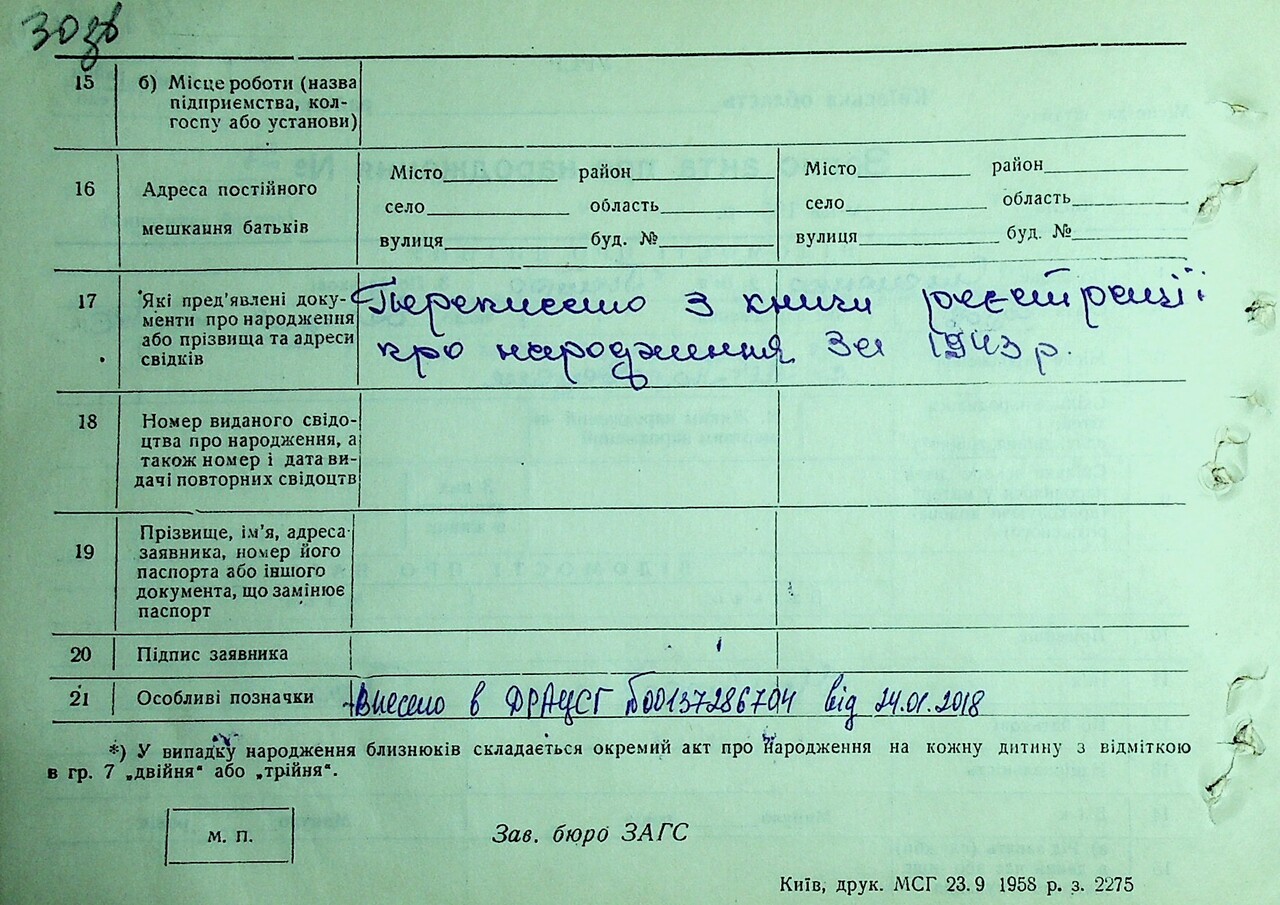 30зв
15 б) Місце роботи (назва
підприємства, кол-
госпу або установи)
16 Адреса постійного
мешкання батьків
Місто район
село область
вулиця буд. №
Місто район
село область
вулиця буд. №
17 Які пред'явлені доку-
менти про народження
або прізвища та адреси
свідків
Переписано з книги реєстрації
про народження за 1943 р.
18 Номер виданого свідо-
цтва про народження, а
також номер і дата ви-
дачі повторних свідоцтв
19 Прізвище, ім'я, адреса
заявника, номер його
паспорта або іншого
документа, що замінює
паспорт
20 Підпис заявника
21 Особливі позначки Внесено в ДРАЦСГ 00137286704 від 24.01.2018
*) У випадку народження близнюків складається окремий акт про народження на кожну дитину з відміткою
в гр. 7 „двійня" або „трійня".
М. П.
Зав. бюро ЗАГС
Київ, друк. МСГ 23.9 1958 р. з. 2275